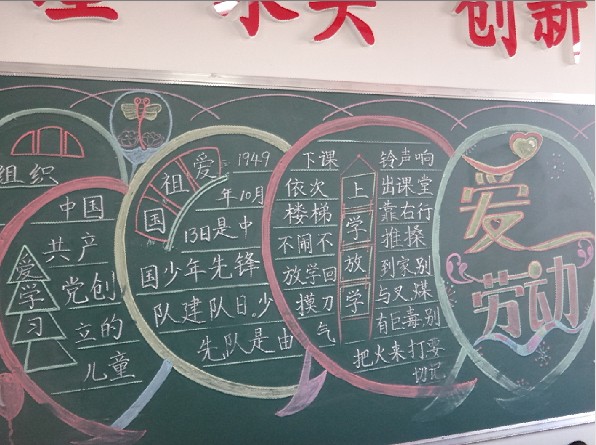 求实 创新
组织
爱学习
中国
共产
党创
立的
儿童
爱祖国
1949
年10月
13日是中
国少年先锋
队建队日,少
先队是由
上学放学
下课 铃声响
依次 出课堂
楼梯 靠右行
不闹不 推搡
放学回 到家别
摸刀 与叉,煤
气 有巨毒别
把火来打要
切记
爱
劳动